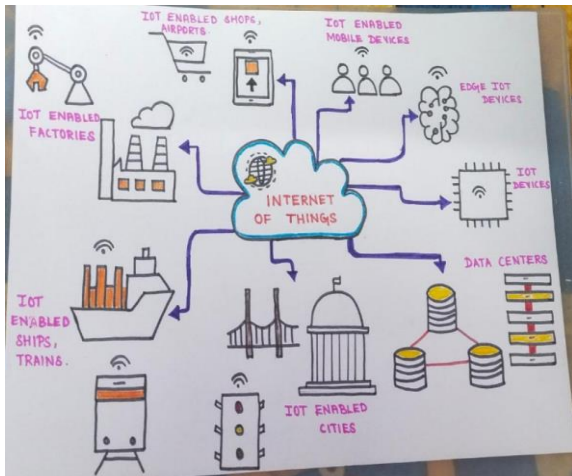 IOT ENABLED SHOPS,
AIRPORTS.
IOT ENABLED
MOBILE DEVICES
EDGE IOT
DEVICES
IOT ENABLED
FACTORIES
INTERNET
OF THINGS
IOT
DEVICES
DATA CENTERS
IOT
ENABLED
SHIPS,
TRAINS.
IOT ENABLED
CITIES